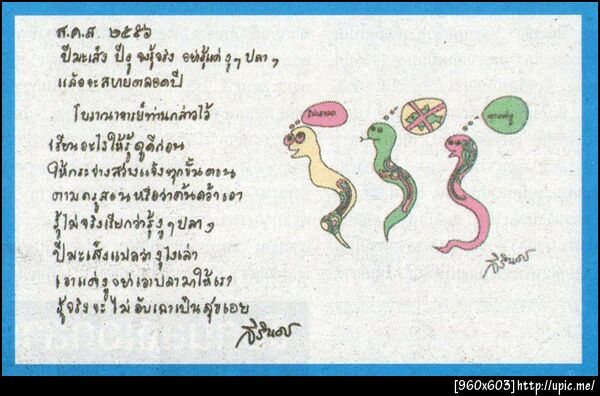 ส.ค.ส ๒๕๕๖
ปีมะเส็ง ปีงู จงรู้จริง อย่ารู้แต่งูๆ ปลาๆ
แล้วจะสบายตลอดปี
โบราณาจารย์ท่านกล่าวไว้
เรียนอะไรให้รู้ ดูดีก่อน
ให้กระจ่างสว่างแจ้งทุกขั้นตอน
ตามครูสอนหรือว่าค้นคว้าเอา
รู้ไม่จริงเรียกว่ารู้งูๆปลาๆ
ปีมะเส็งแปลว่างูไงเล่า
เอาแต่งูอย่าเอาปลามาให้เรา
รู้จริงจะไม่อับเฉาเป็นสุขเอย
สิรินธร
สิรินธร
[960x603] http://upic.me/